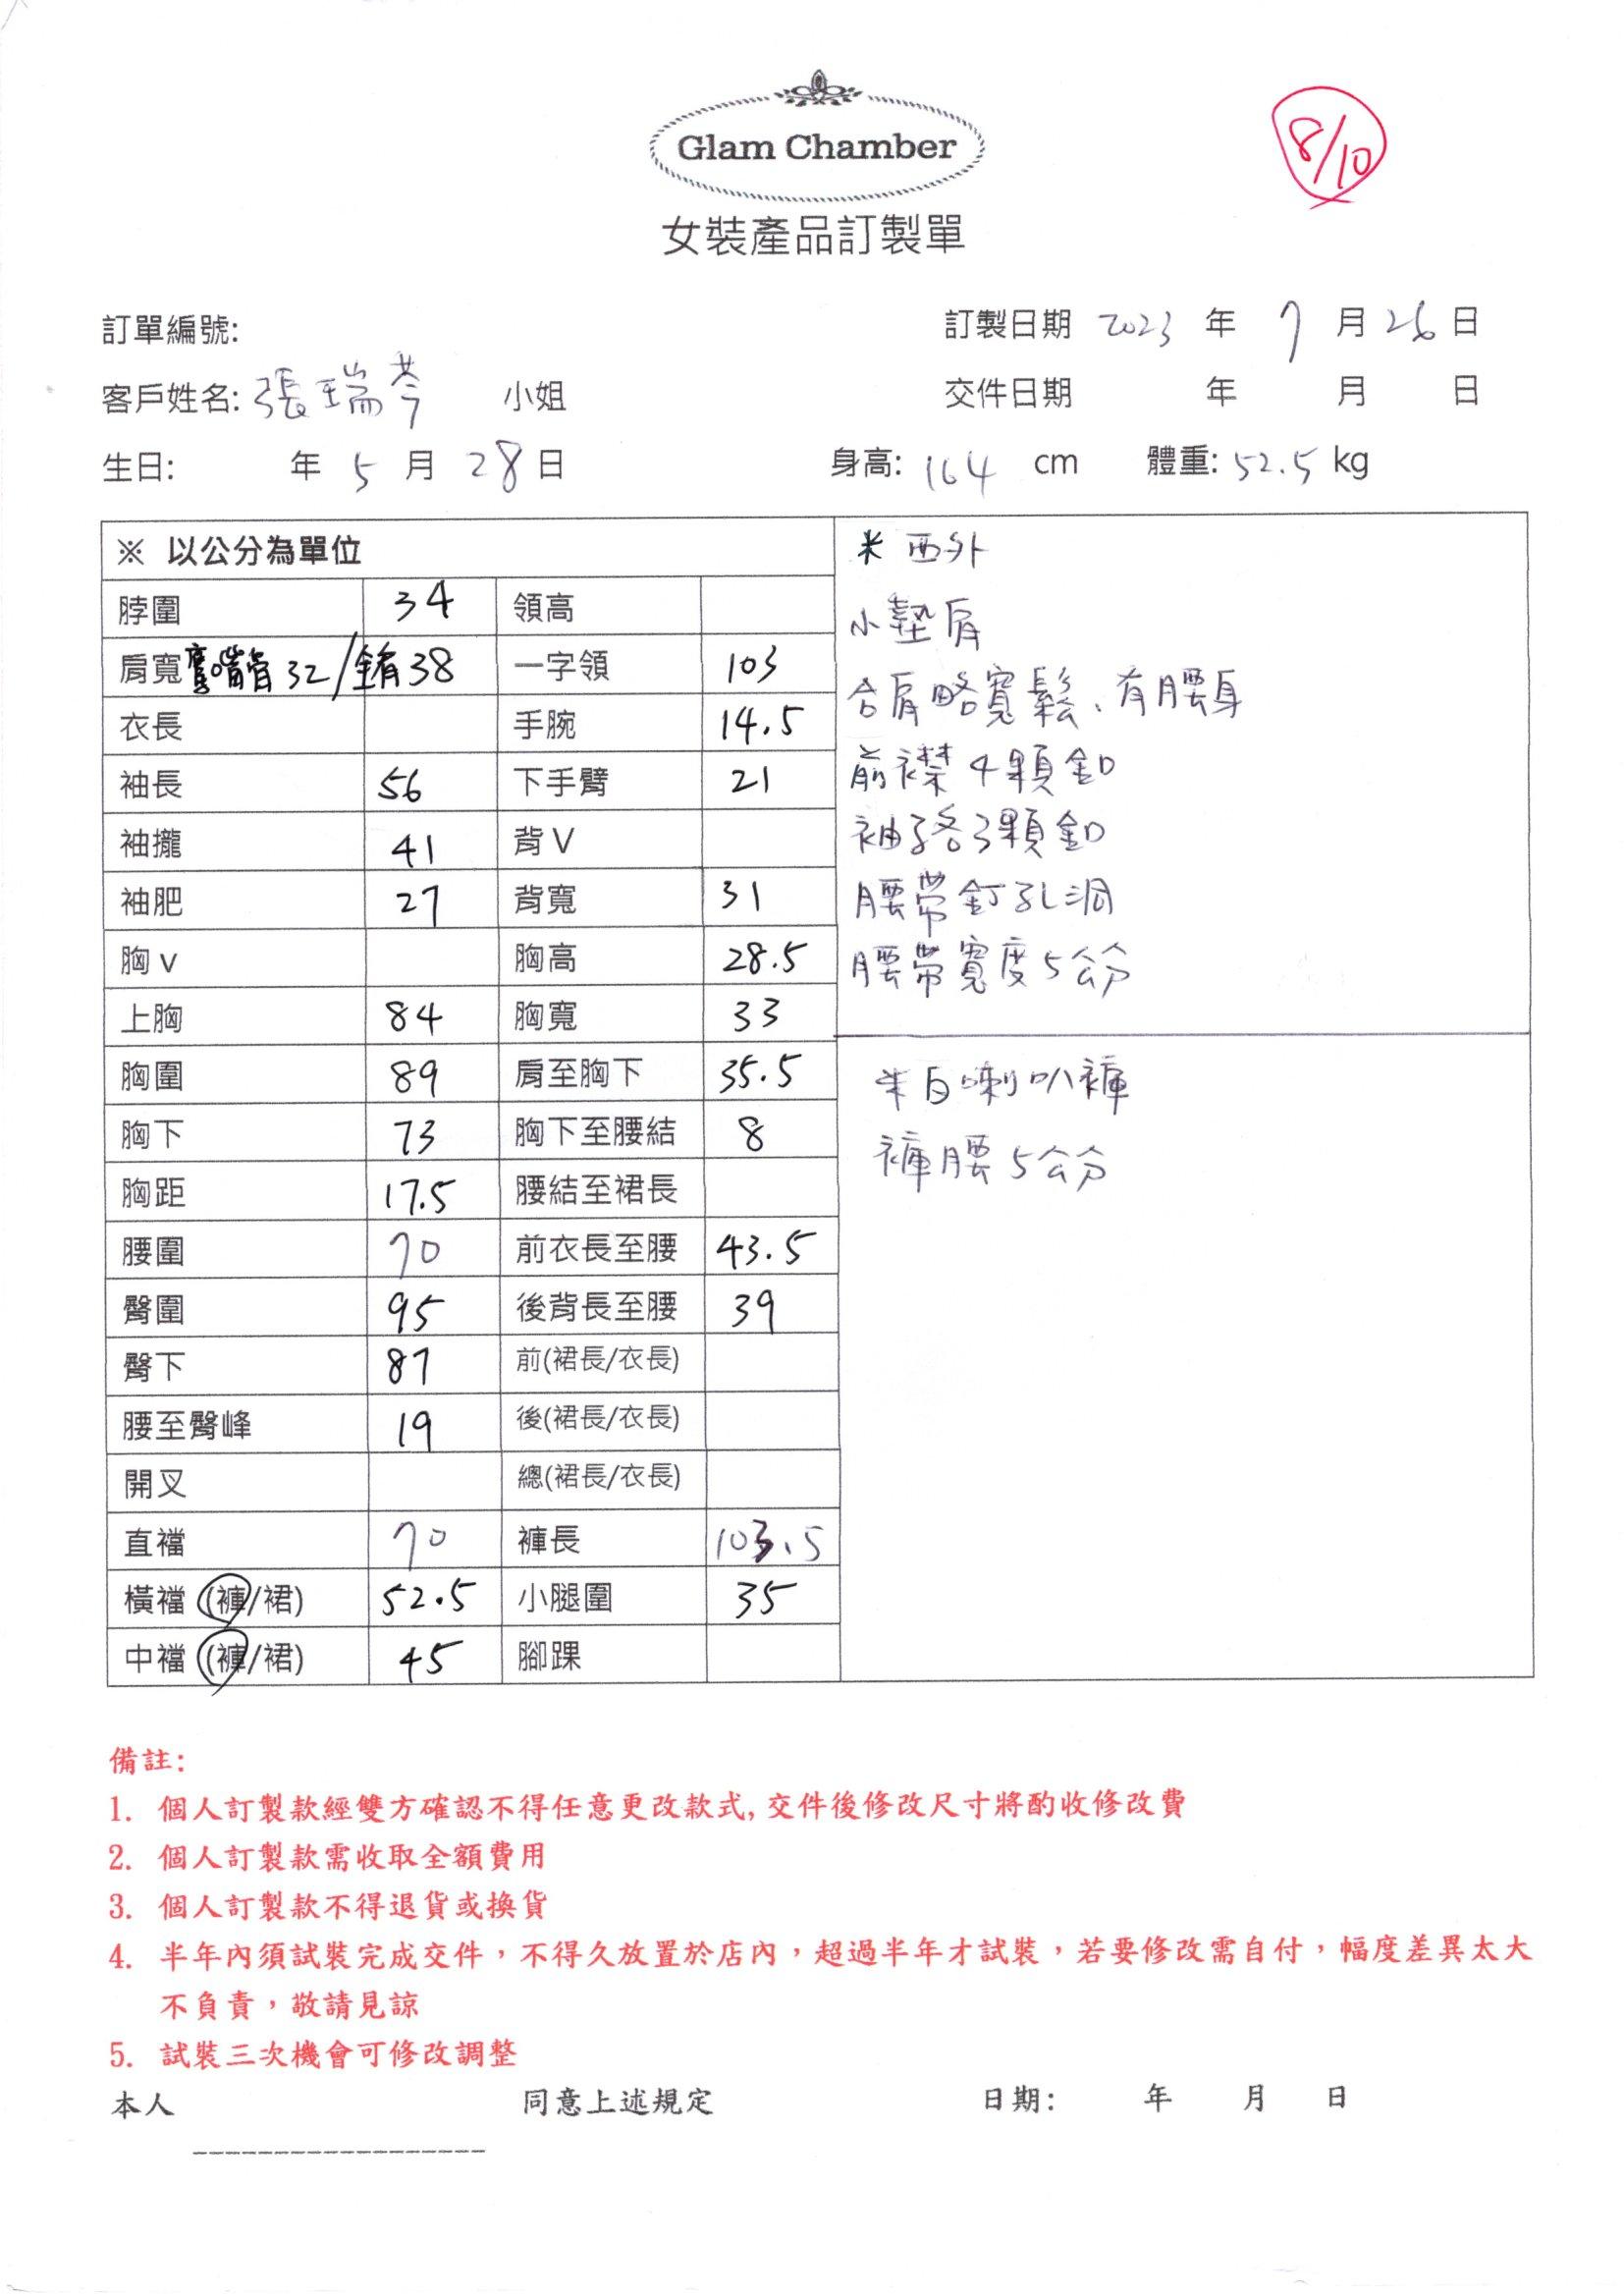 Glam Chamber
8/10
女裝產品訂製單
訂單編號: 訂製日期 2023 年 7 月 26 日
客戶姓名: 張瑞芩 小姐 交件日期 年 月 日
生日: 年 5 月 28 日 身高: 164 cm 體重: 52.5 kg
※ 以公分為單位
脖圍 34 領高
肩寬 鷹嘴肩 32/全肩 38 一字領 103
衣長 手腕 14.5
袖長 56 下手臂 21
袖攏 41 背V
袖肥 27 背寬 31
胸v 胸高 28.5
上胸 84 胸寬 33
胸圍 89 肩至胸下 35.5
胸下 73 胸下至腰結 8
胸距 17.5 腰結至裙長
腰圍 70 前衣長至腰 43.5
臀圍 95 後背長至腰 39
臀下 87 前(裙長/衣長)
腰至臀峰 19 後(裙長/衣長)
開叉 總(裙長/衣長)
直襠 70 褲長 103.5
橫襠 (褲/裙) 52.5 小腿圍 35
中襠 (褲/裙) 45 腳踝
* 西外
小墊肩
合肩略寬鬆、有腰身
前襟4顆釦
袖子各3顆釦
腰帶釘孔洞
腰帶寬度5公分
米白喇叭褲
褲腰5公分
備註:
1. 個人訂製款經雙方確認不得任意更改款式, 交件後修改尺寸將酌收修改費
2. 個人訂製款需收取全額費用
3. 個人訂製款不得退貨或換貨
4. 半年內須試裝完成交件，不得久放置於店內，超過半年才試裝，若要修改需自付，幅度差異太大
不負責，敬請見諒
5. 試裝三次機會可修改調整
本人 同意上述規定 日期: 年 月 日